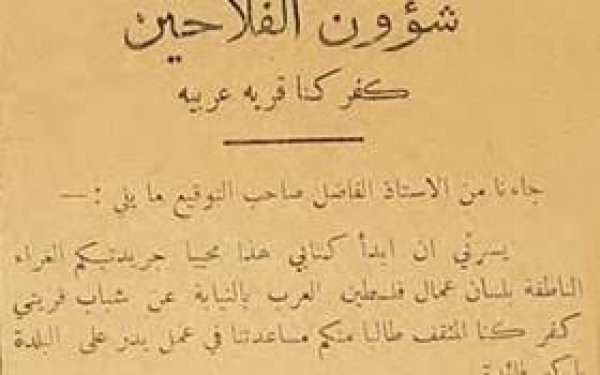 شؤون الفلاحين
كفر كنا قريه عربيه
جاءنا من الاستاذ الفاضل صاحب التوقيع ما يلي : —
يسرني ان ابدأ كتابي هذا محييا جريدتكم الغراء
الناطقة بلسان عمال فلسطين العرب بالنيابة عن شباب قريتي
كفر كنا المثقف طالبا منكم مساعدتنا في عمل يدر على البلدة
فائدة